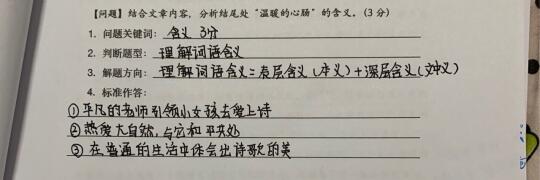 【问题】结合文章内容，分析结尾处“温暖的心肠”的含义。(3分)
1. 问题关键词：含义 3分
2. 判断题型：理解词语含义
3. 解题方向：理解词语含义=表层含义(本义)+深层含义(文中义)
4. 标准作答：
①平凡的老师引领小女孩去爱上诗
②热爱大自然，与它和平共处
③在普通的生活中体会出诗歌的美